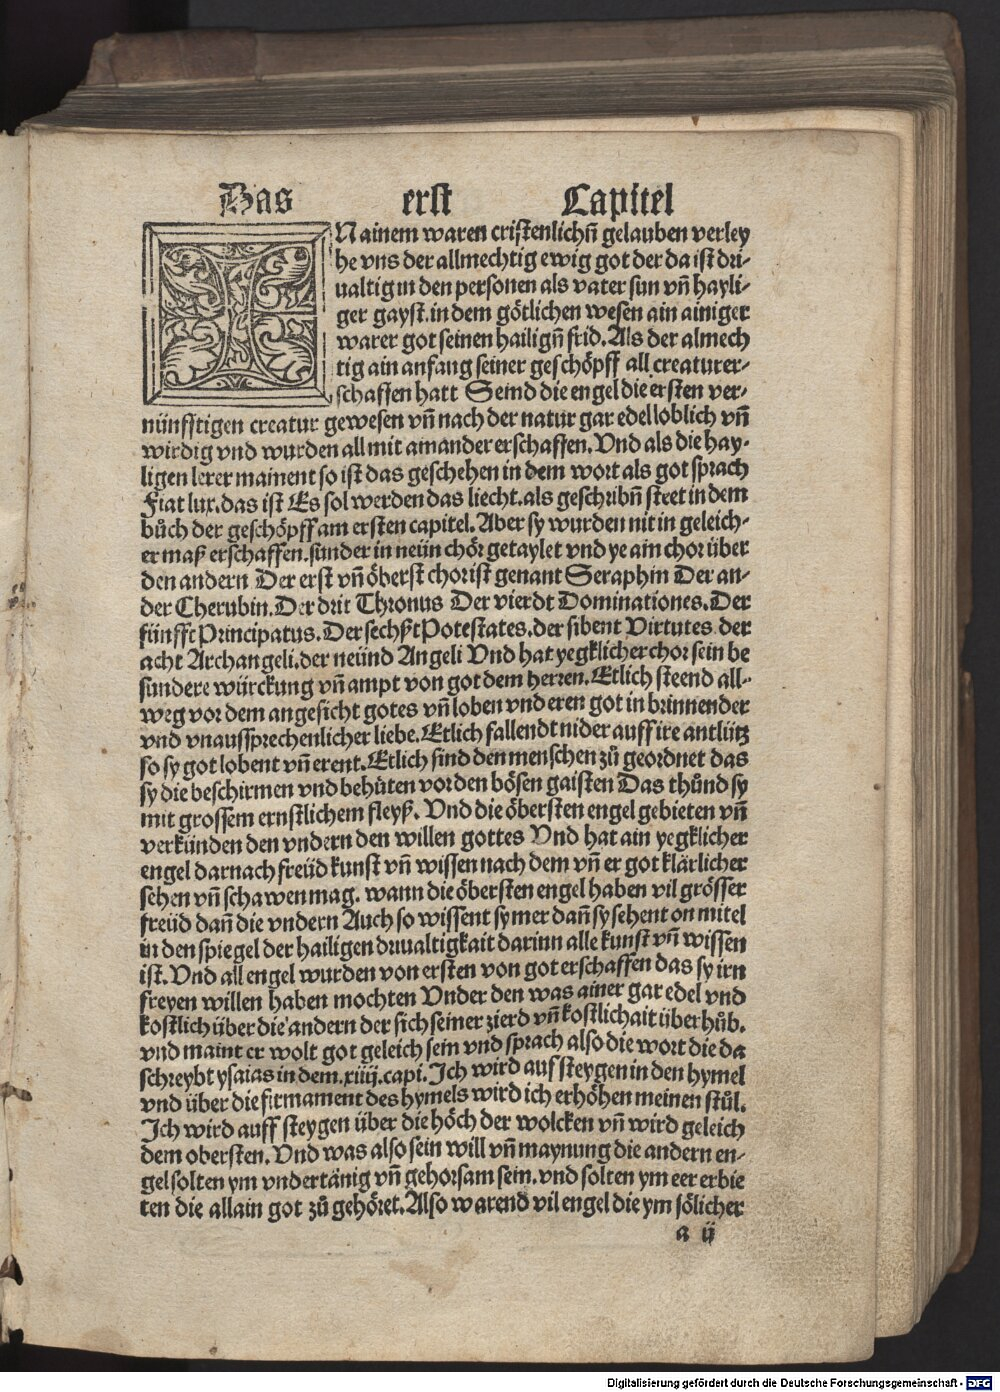 Das erst Capitel
IN ainem waren cristenlichñ gelauben verley
he vns der allmechtig ewig got der da ist dri-
ualtig in den personen als vater sun vñ hayli-
ger gayst. in dem götlichen wesen ain ainiger
warer got seinen hailigñ frid. Als der almech
tig ain anfang seiner geschöpff all creaturer-
schaffen hatt Seind die engel die ersten ver-
nünfftigen creatur gewesen vñ nach der natur gar edel loblich vñ
wirdig vnd wurden all mit ainander erschaffen. Vnd als die hay-
ligen lerer mainent so ist das geschehen in dem wort als got sprach
Fiat lux. das ist Es sol werden das liecht. als geschribñ steet in dem
bůch der geschöpff am ersten capitel. Aber sy wurden nit in geleich-
er maß erschaffen. sunder in neün chör getaylet vnd ye ain chor über
den andern Der erst vñ öberst chor ist genant Seraphin Der an-
der Cherubin. Der drit Thronus Der vierdt Dominationes. Der
fünfft Principatus. Der sechßt Potestates. der sibent Virtutes der
acht Archangeli. der neünd Angeli Vnd hat yegklicher chor sein be
sundere würckung vñ ampt von got dem herren. Etlich steend all-
weg vor dem angesicht gotes vñ loben vnd eren got in brinnender
vnd vnaussprechenlicher liebe. Etlich fallendt nider auff ire antlütz
so sy got lobent vñ erent. Etlich sind den menschen zů geordnet das
sy die beschirmen vnd behüten vor den bösen gaisten Das thůnd sy
mit grossem ernstlichem fleyß. Vnd die öbersten engel gebieten vñ
verkünden den vndern den willen gottes Vnd hat ain yegklicher
engel darnach freüd kunst vñ wissen nach dem vñ er got klärlicher
sehen vñ schawen mag. wann die öbersten engel haben vil grösser
freüd dañ die vndern Auch so wissent sy mer dañ sy sehent on mitel
in den spiegel der hailigen driualtigkait darinn alle kunst vñ wissen
ist. Vnd all engel wurden von ersten von got erschaffen das sy irn
freyen willen haben mochten Vnder den was ainer gar edel vnd
kostlich über die andern der sich seiner zierd vñ kostlichait überhůb.
vnd maint er wolt got geleich sein vnd sprach also die wort die da
schreybt ysaias in dem .xiiij. capi. Ich wird auf steygen in den hymel
vnd über die firmament des hymels wird ich erhöhen meinen stůl.
Ich wird auff steygen über die höch der wolcken vñ wird geleich
dem obersten. Vnd was also sein will vñ maynung die andern en-
gel solten ym vndertänig vñ gehorsam sein. vnd solten ym eer erbie
ten die allain got zů gehöret. Also warend vil engel die ym sölicher
a ij
Digitalisierung gefördert durch die Deutsche Forschungsgemeinschaft - DFG